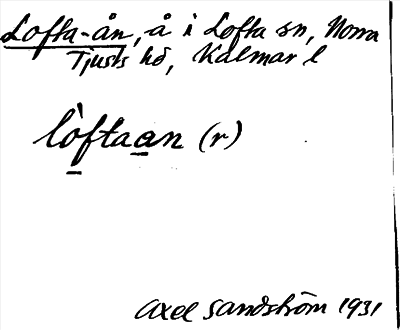 Lofta-ån, å i Lofta sn, Norra
Tjusts hd, Kalmar l
lòftaan (r)
Axel Sandström 1931